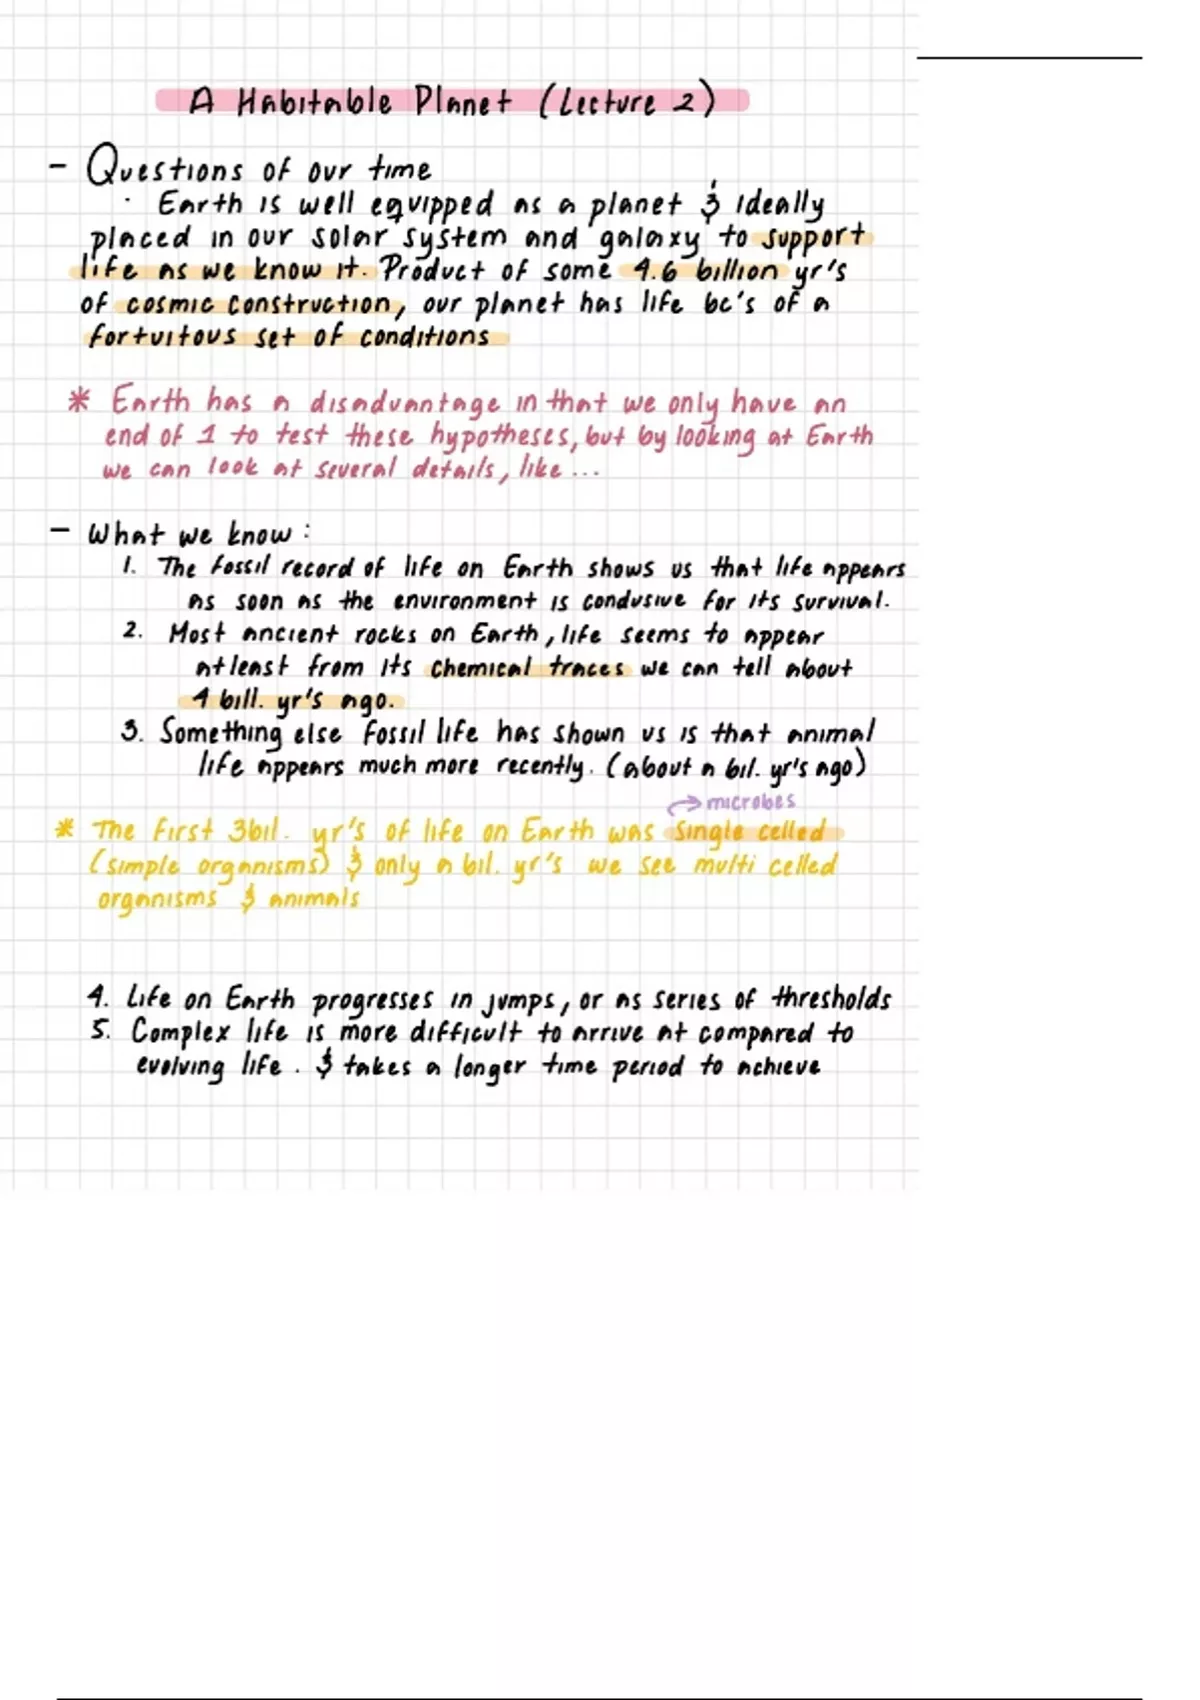 A Habitable Planet (Lecture 2)
- Questions of our time
· Earth is well equipped as a planet & ideally
placed in our solar system and galaxy to support
life as we know it. Product of some 4.6 billion yr's
of cosmic construction, our planet has life bc's of a
fortuitous set of conditions
* Earth has a disadvantage in that we only have an
end of 1 to test these hypotheses, but by looking at Earth
we can look at several details, like ...
- What we know :
1. The fossil record of life on Earth shows us that life appears
as soon as the environment is condusive for its survival.
2. Most ancient rocks on Earth, life seems to appear
atleast from its chemical traces we can tell about
4 bill. yr's ago.
3. Something else fossil life has shown us is that animal
life appears much more recently. (about a bil. yr's ago)
→ microbes
* The first 3bil. yr's of life on Earth was single celled
(simple organisms) & only a bil. yr's we see multi celled
organisms & animals
4. Life on Earth progresses in jumps, or as series of thresholds
5. Complex life is more difficult to arrive at compared to
evolving life. & takes a longer time period to achieve